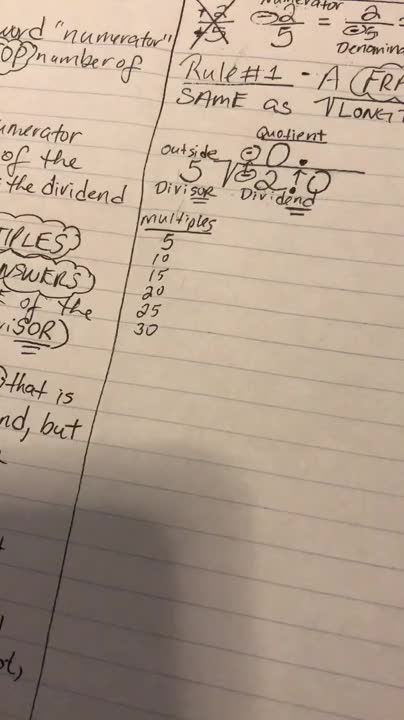 word "numerator"
TOP number of
numerator
of the
the dividend
TIPLES
ANSWERS
of the
viSOR)
that is
nd, but
+2/+5 ⊖2/5 = 2/⊖5 =
Numerator
Denomina
Rule #1 - A FRA
SAME as √LONG
Quotient
outside ⊖ 0.
5 √⊖2.0
DiviSOR Dividend
multiples
5
10
15
20
25
30